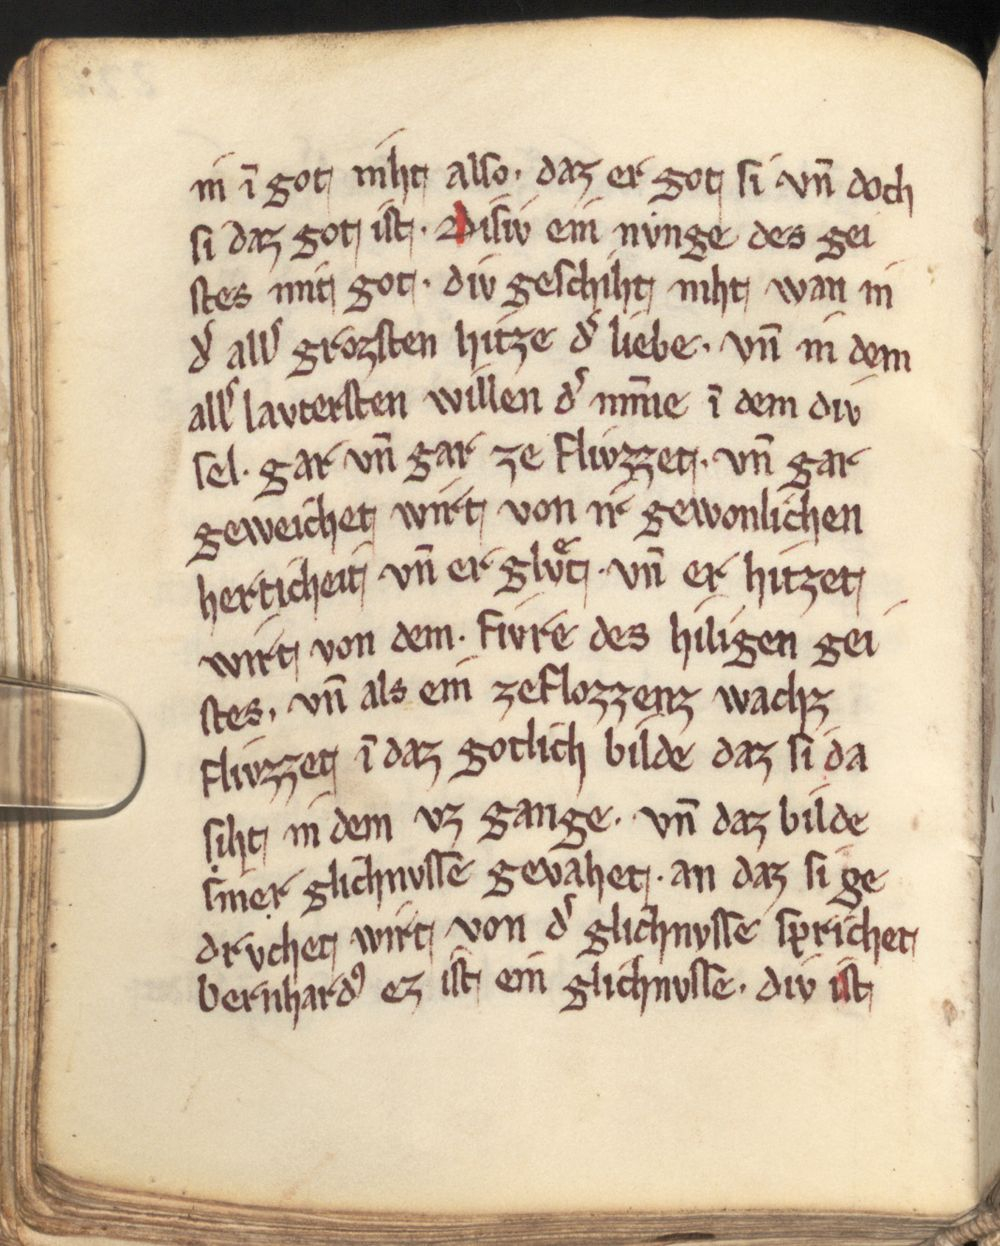 in ī got niht also· daz er got si vn̄ doch
si daz got ist· Disiv ein nvnge des gei
stes mit got· div geschiht niht wan in
d͛ all͛ grozsten hitze d͛ liebe· vn̄ in dem
all͛ lavtersten willen d͛ miñe ī dem div
sel· gar vn̄ gar ze flivzzet· vn̄ gar
geweichet wirt von ir gewonlichen
herticheit vn̄ er glvͤt· vn̄ er hitzet
wirt von dem· fivre des hiligen gei
stes· vn̄ als ein zeflozzenz wachz
flivzzet ī daz gotlich bilde daz si da
siht in dem vz gange· vn̄ daz bilde
siner glichnvsse gevahet· an daz si ge
drvchet wirt von d͛ glichnvsse sprichet
bernhardꝰ ez ist ein glichnvsse· div ist